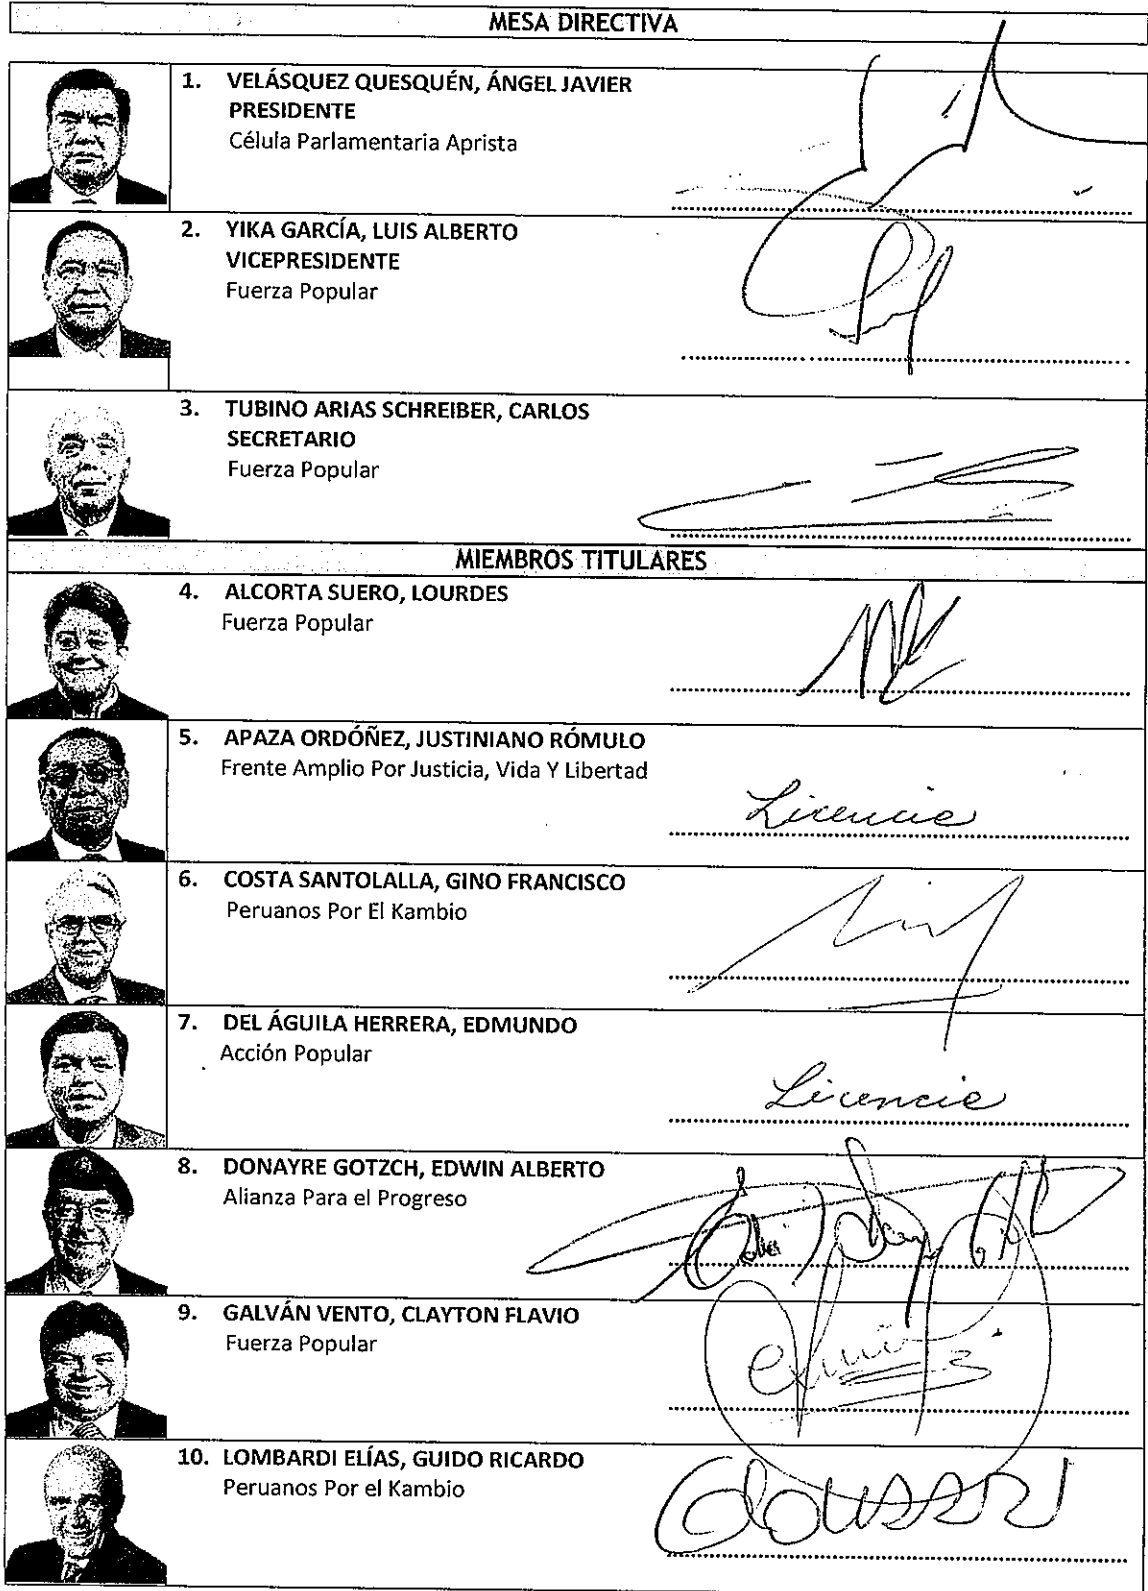 MESA DIRECTIVA
1. VELÁSQUEZ QUESQUÉN, ÁNGEL JAVIER
PRESIDENTE
Célula Parlamentaria Aprista
2. YIKA GARCÍA, LUIS ALBERTO
VICEPRESIDENTE
Fuerza Popular
3. TUBINO ARIAS SCHREIBER, CARLOS
SECRETARIO
Fuerza Popular
MIEMBROS TITULARES
4. ALCORTA SUERO, LOURDES
Fuerza Popular
5. APAZA ORDÓÑEZ, JUSTINIANO RÓMULO
Frente Amplio Por Justicia, Vida Y Libertad
Licencia
6. COSTA SANTOLALLA, GINO FRANCISCO
Peruanos Por El Kambio
7. DEL ÁGUILA HERRERA, EDMUNDO
Acción Popular
Licencia
8. DONAYRE GOTZCH, EDWIN ALBERTO
Alianza Para el Progreso
9. GALVÁN VENTO, CLAYTON FLAVIO
Fuerza Popular
10. LOMBARDI ELÍAS, GUIDO RICARDO
Peruanos Por el Kambio